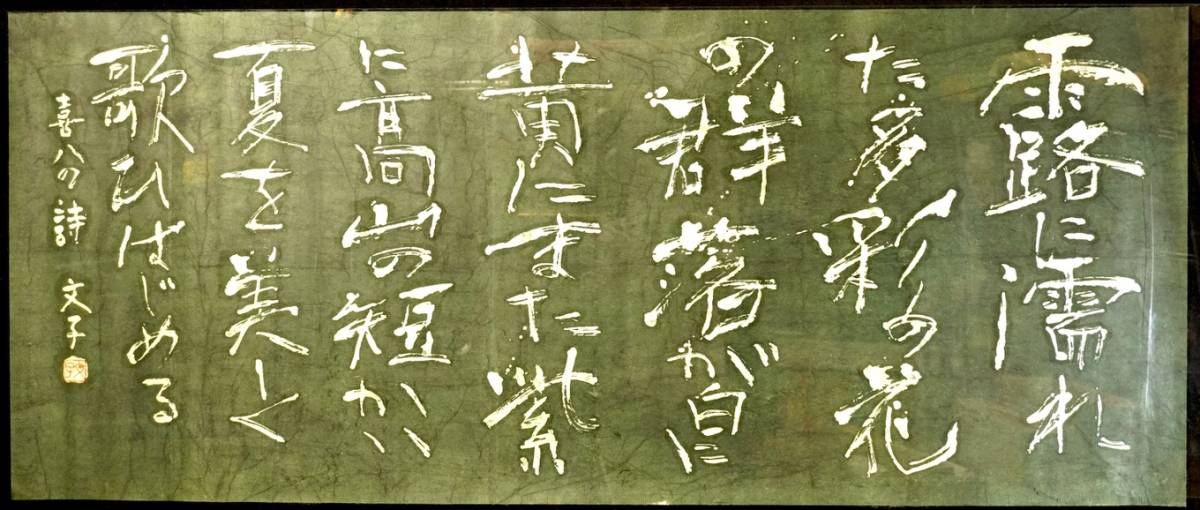 露に濡れ
た多彩の花
の群落が白に
黄にまた紫
に高山の短かい
夏を美しく
歌ひはじめる
喜八の詩 文子